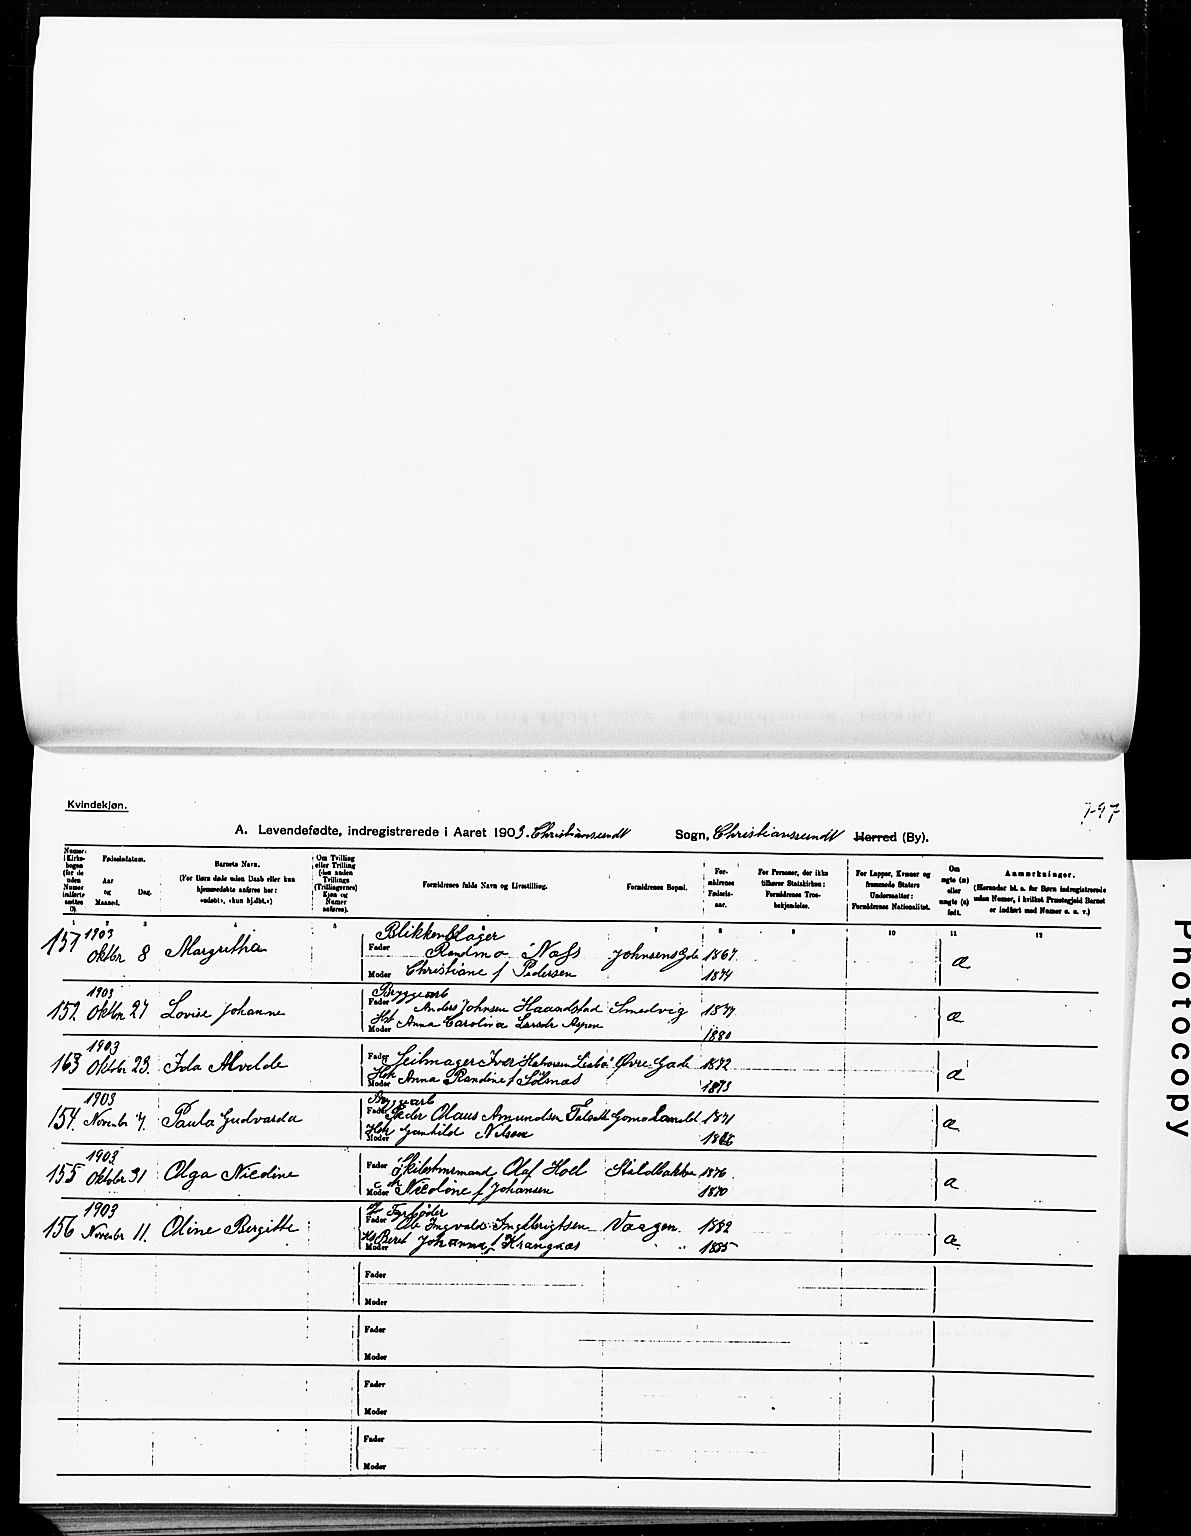 Kvindekjøn.
797
A. Levendefødte, indregistrerede i Aaret 1903. Christianssundt Sogn, Christianssundt Herred (By).
Numer i Kirkebogen (for de uden Numer indførte sættes 0).
Fødselsdatum. Aar og Maaned. Dag.
Barnets Navn. (For Børn døde uden Daab eller kun hjemmedøbte anføres her: «udøbt», «kun hj.dbt.»)
Om Tvilling eller Trilling (den anden Tvillings (Trillingernes) Kjøn og Numer anføres).
Forældrenes fulde Navn og Livsstilling.
Forældrenes Bopæl.
Forældrenes Fødselsaar.
For Personer, der ikke tilhører Statskirken: Forældrenes Trosbekjendelse.
For Lapper, Kvæner og fremmede Staters Undersaatter: Forældrenes Nationalitet.
Om ægte (æ) eller uægte (u) født.
Anmærkninger. (Herunder bl. a. for Børn indregistrerede uden Numer, i hvilket Præstegjeld Barnet er indført med Numer o. s. v.)
1 2 3 4 5 7 8 9 10 11 12
151 1903 Oktbr 8 Margretha
Blikkenslager
Fader Randmo Næss Johnsens Gde 1867
Moder Christiane f Pedersen 1874 æ
152 1903 Oktbr 27 Lovise Johanne
Bryggearb
Fader Anders Johnsen Haandstad Smedvig
Hst Moder Anna Carolina Larsdr Aspen 1880 æ
163 1903 Oktobr 23. Ida Alvilde
Fader Seilmager Iver Øvre Gade 1872
Hst Moder Anna Randine f Sølsnæs 1873 æ
154 1903 Novembr 7. Paula Gudvarda
Bryggearb
Fader Peder Olaus Amundsen Gomalandet 1871
Hst Moder Gunhild Nilsen æ
155 1903 Oktobr 31 Olga Nicoline
Fader Olaf Hoel Staldbakken 1876
Moder Nicoline f Johansen 1870 æ
156 1903 Novembr 11. Oline Bergitte
Fader Ole Ingvald Ingebrigtsen Vaagen. 1882
Hst Moder Beret Johanna f Krangnæs " 1885 æ
Fader
Moder
Fader
Moder
Fader
Moder
Fader
Moder
Photocopy